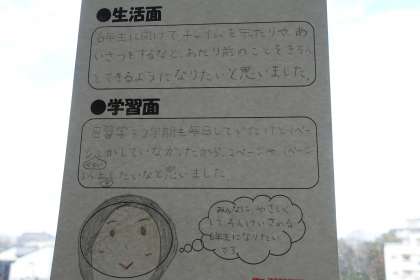 ●生活面
6年生に向けてチャイムを守ったりや、あ
いさつをするなど、あたり前のことをきちん
とできるようになりたいと思いました。
●学習面
自習学を2学期も毎日していたけど1ペー
ジしかしていなかったから、2ペーじや、1ページ
したいなと思いました。
みんなに、やさしく
して、そんけいされる
6年生になりたい
です。